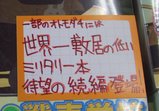 一部のオトモダチには
世界一敷居の低い
ミリタリー本
待望の続編登場